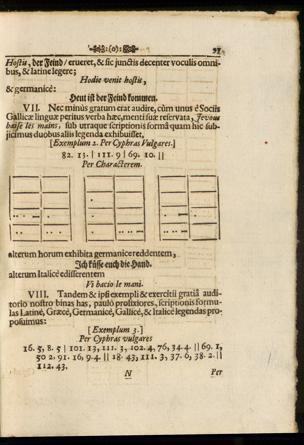 :(o): 91
Hostis, der Feind / erueret, & sic junctis decenter voculis omni-
bus, & latine legere;
Hodie venit hostis,
& germanicè:
Heut ist der Feind kommen.
VII. Nec minùs gratum erat audire, cùm unus è Sociis
Gallicæ linguæ peritus verba hæc, menti suæ reservata, Je vous
baise les mains, sub utraque scriptionis formâ quam hic sub-
jicimus duobus aliis legenda exhibuisset.
[Exemplum 2. Per Cyphras Vulgares.]
82. 15. | 111. 9 | 69. 10. ||
Per Characterem.
alterum horum exhibita germanicè reddentem,
Ich küsse euch die Hand.
alterum Italicè edisserentem
Vi bacio le mani.
VIII. Tandem & ipsi exempli & exercitii gratiâ audi-
torio nostro binas has, paulò prolixiores, scriptionis formu-
las Latinè, Græcè, Germanicè, Gallicè, & Italicè legendas pro-
posuimus:
[Exemplum 3.]
Per Cyphras vulgares
16. 5, 8. 5 | 101. 13, 111. 3, 102. 4, 76, 34. 4 || 69. 1,
50 2. 91. 16, 9. 4 || 18. 43, 111. 3, 37. 6, 38. 2 ||
112. 43.
N Per